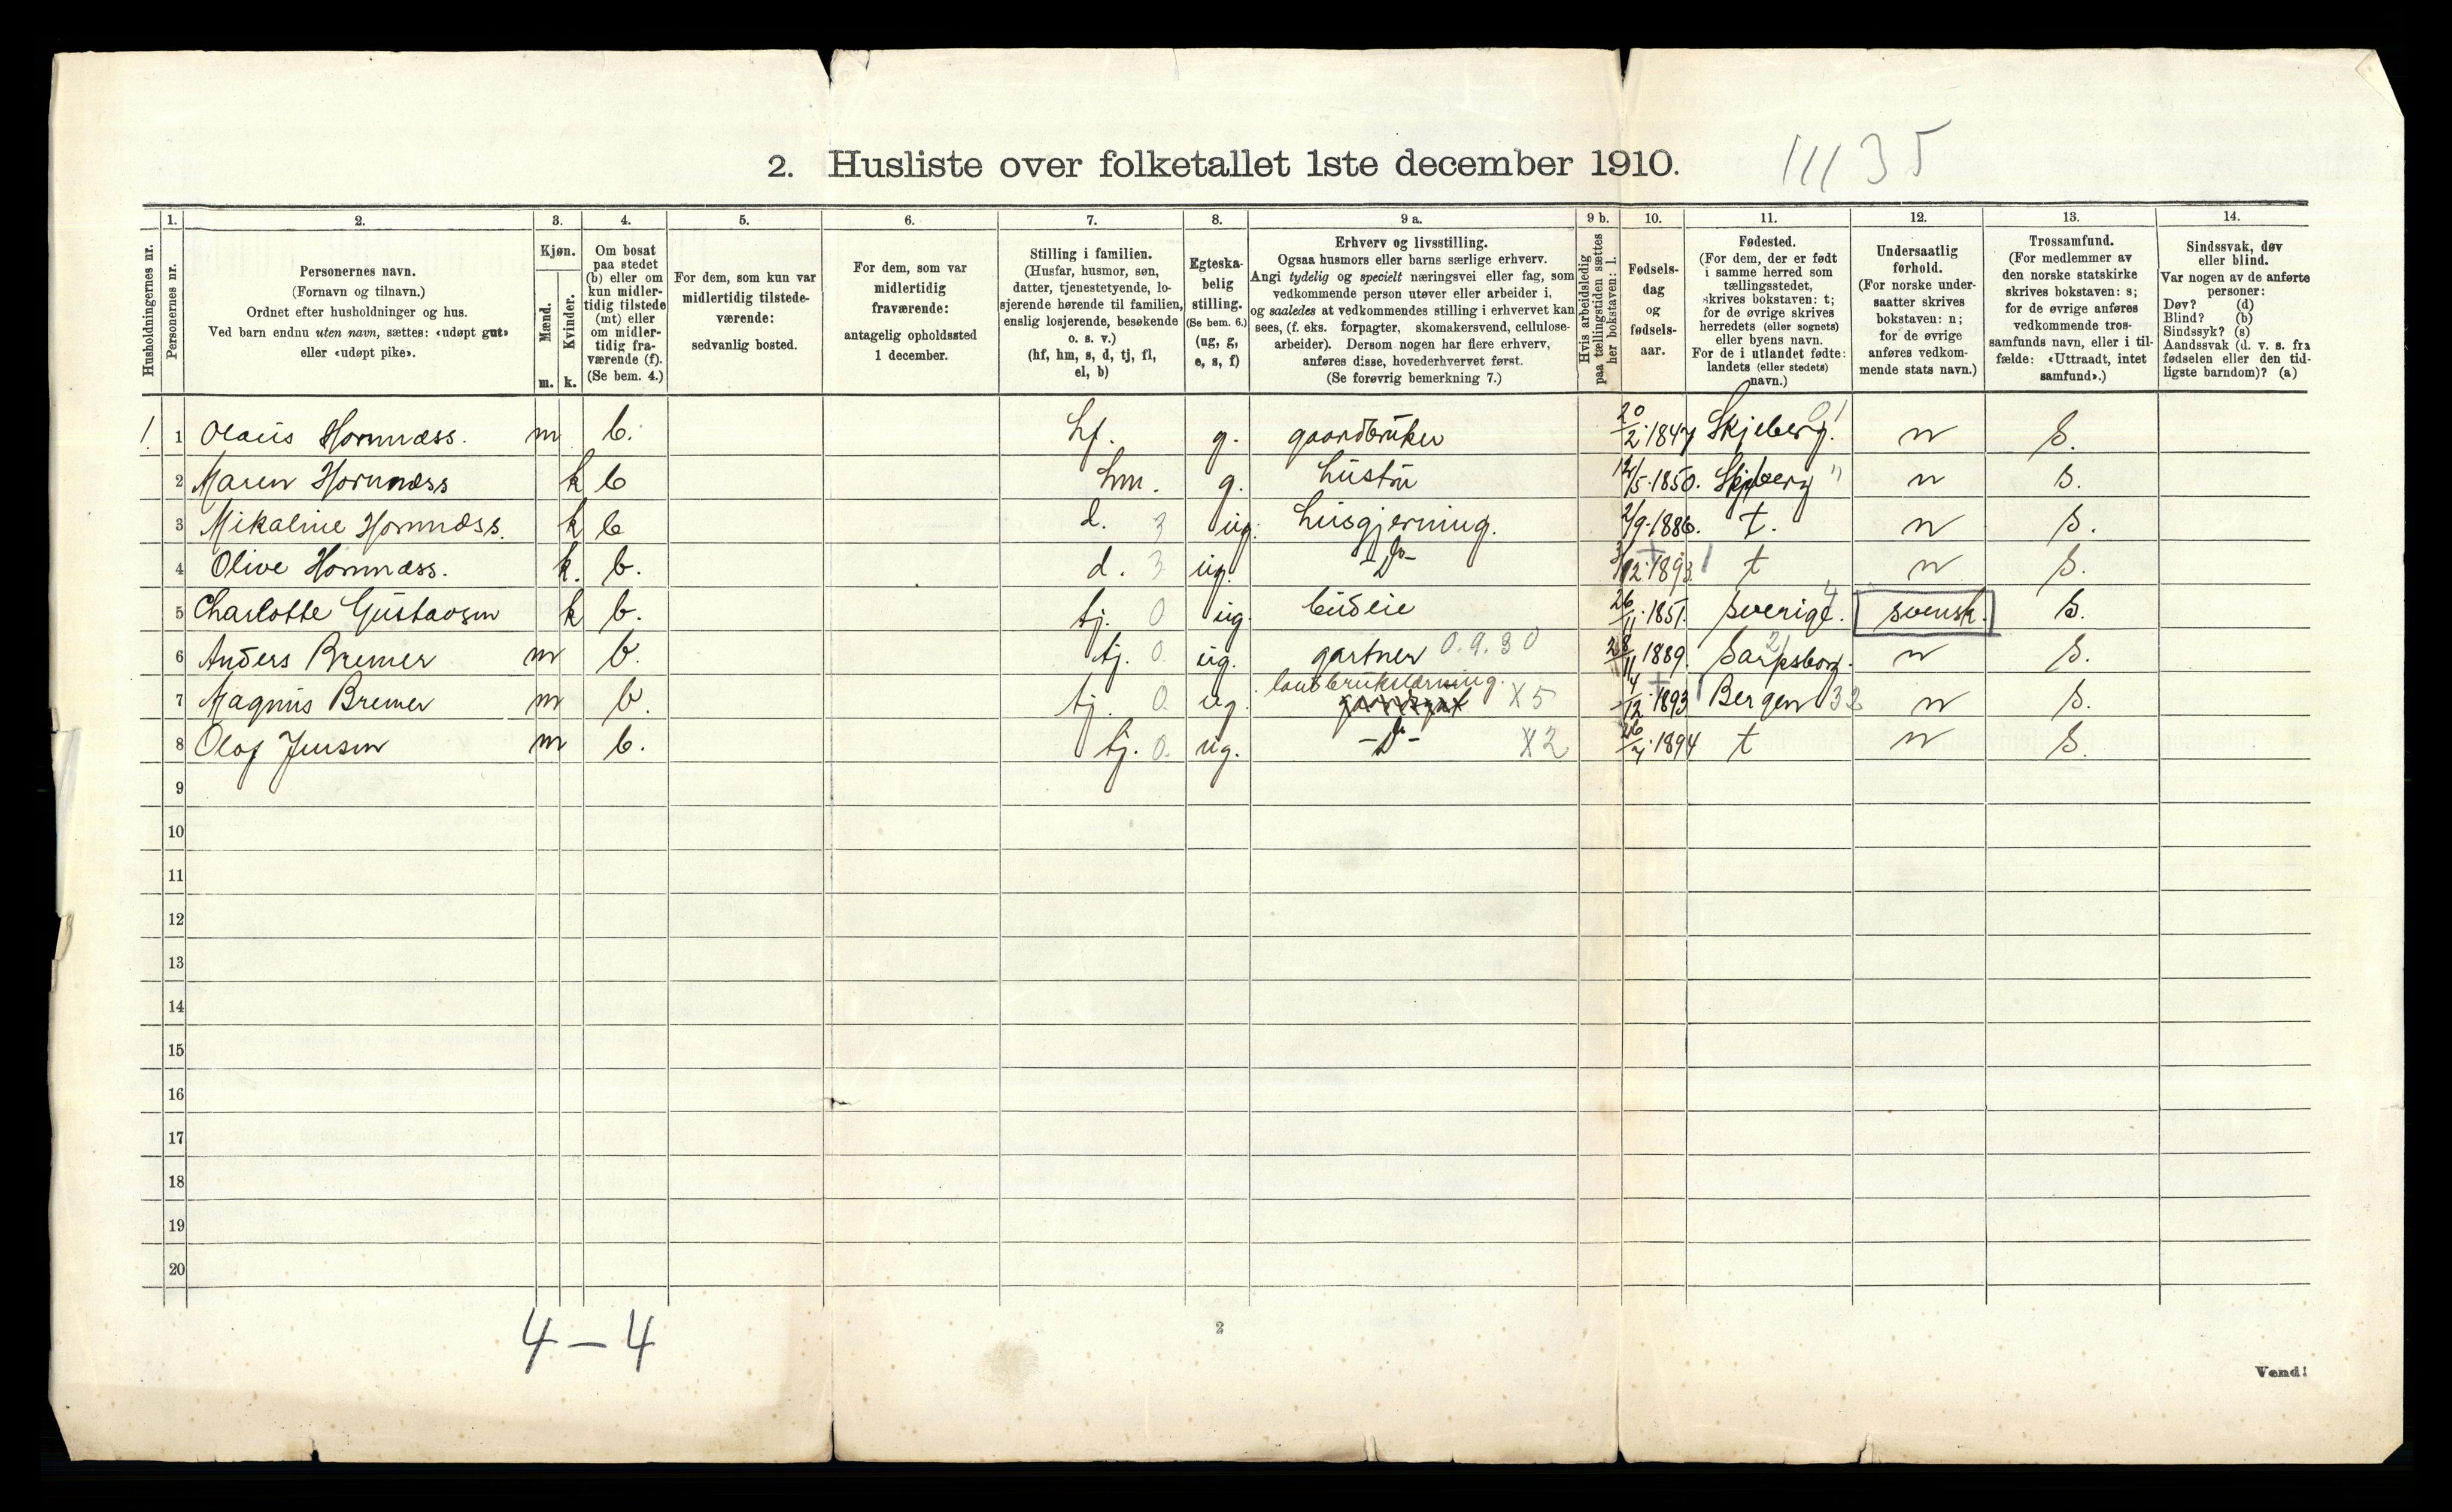 2. Husliste over folketallet 1ste december 1910.
11135
Husholdningernes nr.
1.
Personernes nr.
2.
Personernes navn.
(Fornavn og tilnavn.)
Ordnet efter husholdninger og hus.
Ved barn endnu uten navn, sættes: «udøpt gut»
eller «udøpt pike».
3.
Kjøn.
Mænd.
Kvinder.
m. k.
4.
Om bosat
paa stedet
(b) eller om
kun midler-
tidig tilstede
(mt) eller
om midler-
tidig fra-
værende (f).
(Se bem. 4.)
5.
For dem, som kun var
midlertidig tilstede-
værende:
sedvanlig bosted.
6.
For dem, som var
midlertidig
fraværende:
antagelig opholdssted
1 december.
7.
Stilling i familien.
(Husfar, husmor, søn,
datter, tjenestetyende, lo-
sjerende hørende til familien,
enslig losjerende, besøkende
o. s. v.)
(hf, hm, s, d, tj, fl,
el, b)
8.
Egteska-
belig
stilling.
(Se bem. 6.)
(ug, g,
e, s, f)
9 a.
Erhverv og livsstilling.
Ogsaa husmors eller barns særlige erhverv.
Angi tydelig og specielt næringsvei eller fag, som
vedkommende person utøver eller arbeider i,
og saaledes at vedkommendes stilling i erhvervet kan
sees, (f. eks. forpagter, skomakersvend, cellulose-
arbeider). Dersom nogen har flere erhverv,
anføres disse, hovederhvervet først.
(Se forøvrig bemerkning 7.)
9 b.
Hvis arbeidsledig
paa tællingstiden sættes
her bokstaven: l.
10.
Fødsels-
dag
og
fødsels-
aar.
11.
Fødested.
(For dem, der er født
i samme herred som
tællingsstedet,
skrives bokstaven: t;
for de øvrige skrives
herredets (eller sognets)
eller byens navn.
For de i utlandet fødte:
landets (eller stedets)
navn.)
12.
Undersaatlig
forhold.
(For norske under-
saatter skrives
bokstaven: n;
for de øvrige
anføres vedkom-
mende stats navn.)
13.
Trossamfund.
(For medlemmer av
den norske statskirke
skrives bokstaven: s;
for de øvrige anføres
vedkommende tros-
samfunds navn, eller i til-
fælde: «Uttraadt, intet
samfund».)
14.
Sindssvak, døv
eller blind.
Var nogen av de anførte
personer:
Døv? (d)
Blind? (b)
Sindssyk? (s)
Aandssvak (d. v. s. fra
fødselen eller den tid-
ligste barndom)? (a)
1 1 Olaus Hornnæss. m b. hf. g. gaardbruker 20/2 1847 Skjeberg. n s.
2 Maren Hornnæss k b hm. g. hustru 12/5 1850. Skjeberg " n s.
3 Mikaline Hornnæss. k b d. 3 ug. husgjerning. 2/9 1886. t. n s.
4 Olive Hornnæss. k. b. d. 3 ug. -Do- 3/12 1893. t n s.
5 Charlotte Gustavsen k b. tj. 0 ug. budeie 26/11 1851. Sverige. 4 svensk. s.
6 Anders Bremer m b. tj. 0 ug. gartner 0.9.30 28/11 1889. Sarpsborg. 21 n s.
7 Magnus Bremer m b. tj. 0 ug. landbrukslærning. X5 4/12 1893 Bergen 32 n s.
8 Olaf Jensen m b. tj. 0. ug. -Do- X2 26/7 1894 t n s.
9
10
11
12
13
14
15
16
17
18
19
20
4 – 4
2
Vend!